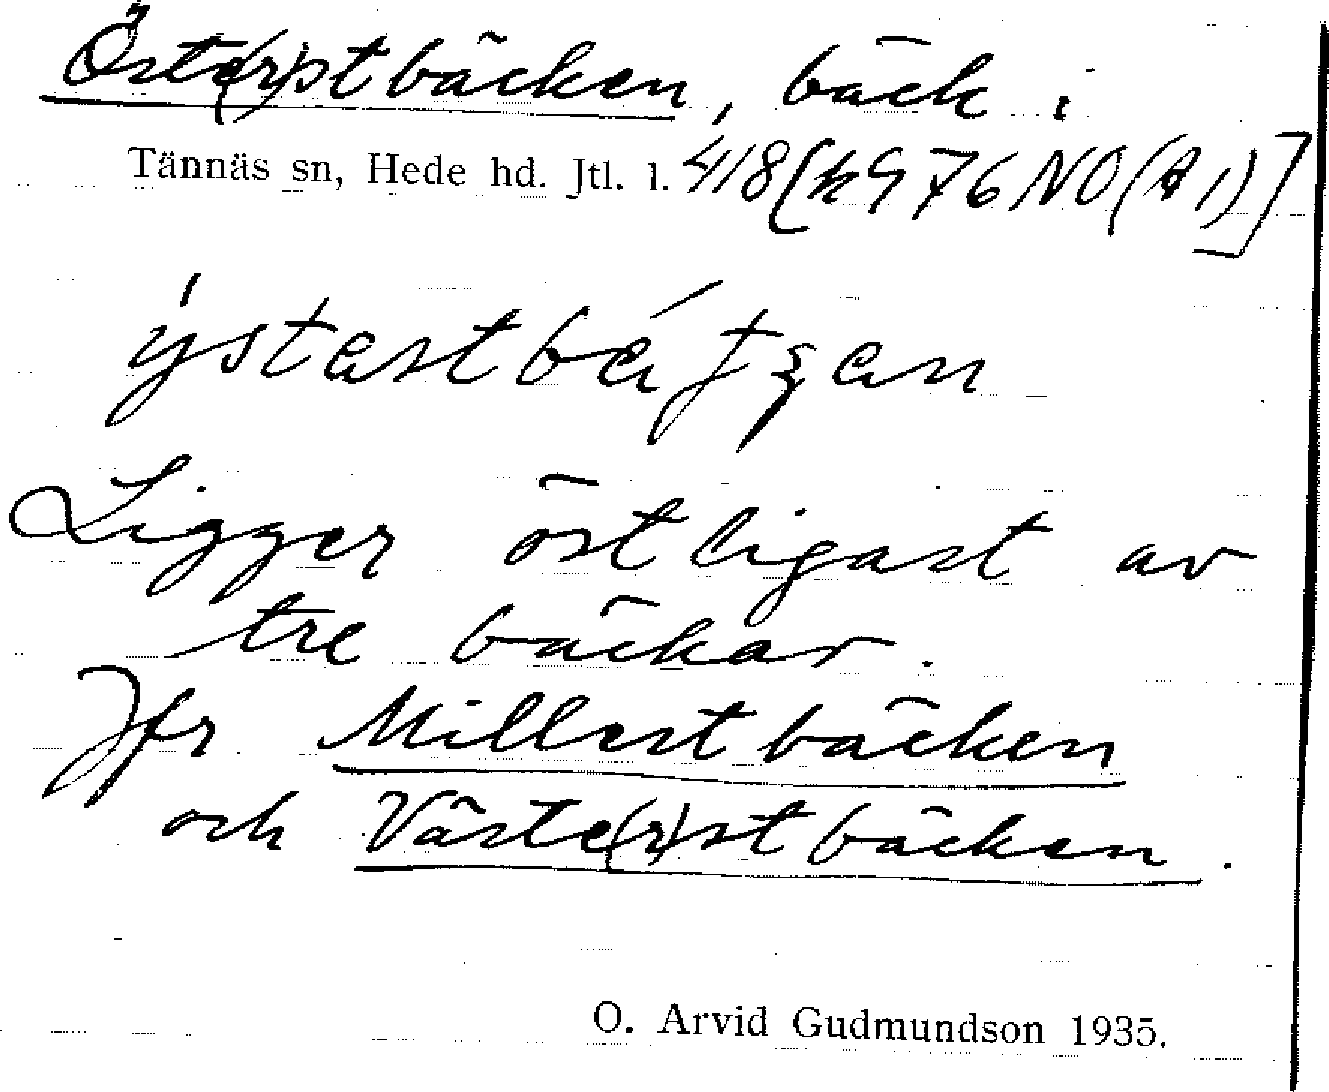 Öste(r)stbäcken, bäck i
Tännäs sn, Hede hd. Jtl. l. 418 [k976NO(A1)]
Ligger östligast av
tre bäckar.
Jfr Millestbäcken
och Väste(r)stbäcken.
O. Arvid Gudmundson 1935.